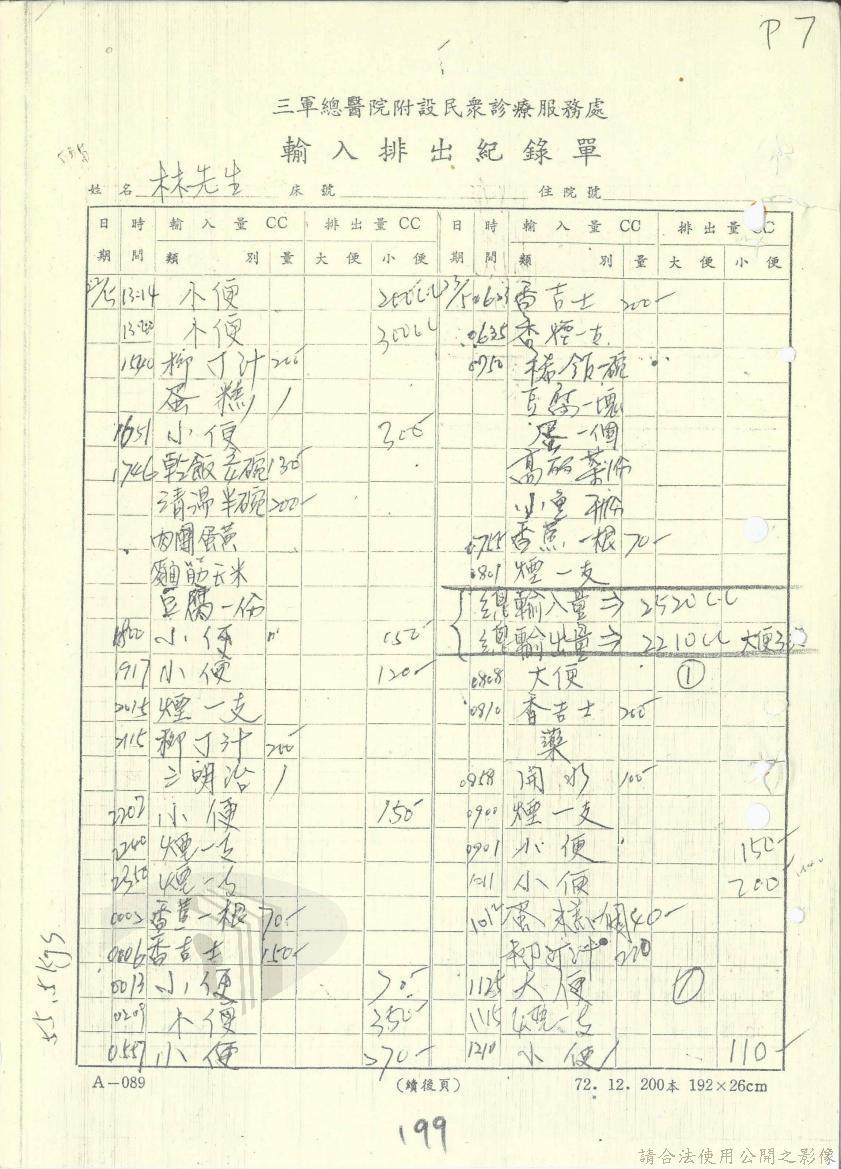 P 7
三軍總醫院附設民衆診療服務處
輸入排出紀錄單
姓名 林先生 床號 住院號
日期 時間 輸入量 CC 類別 量 排出量 CC 大便 小便 日期 時間 輸入量 CC 類別 量 排出量 CC 大便 小便
22/5 13:14 小便 200CC
小便 300CC
1540 柳丁汁 200
蛋糕 1
1651 小便 300
1746 乾飯 碗 130
清湯半碗 200
蛋黃
麵筋玉米
豆腐一份
1800 小便 150
1917 小便 120
2015 煙一支
2115 柳丁汁 200
三明治 1
2202 小便 150
2240 煙一支
2350 煙一支
0003 香蕉一根 70
0006 香吉士 150
0013 小便
0209 小便 350
0557 小便 270
23/5 0623 香吉士 200
0635 香煙一支
0750 稀飯一碗
豆腐一塊
蛋一個
小魚
0755 香蕉一根 70
0801 煙一支
總輸入量⇒ 2520CC
總輸出量⇒ 2210CC 大便
0808 大便 ①
0810 香吉士 200
藥
0858 開水 100
0900 煙一支
0901 小便 150
1011 小便 200
1012 蛋糕 個 40
柳丁汁 220
1125 大便 ①
1115 煙一支
1210 小便 110
55.5kgs
A-089 (續後頁) 72. 12. 200本 192×26cm
199
請合法使用公開之影像